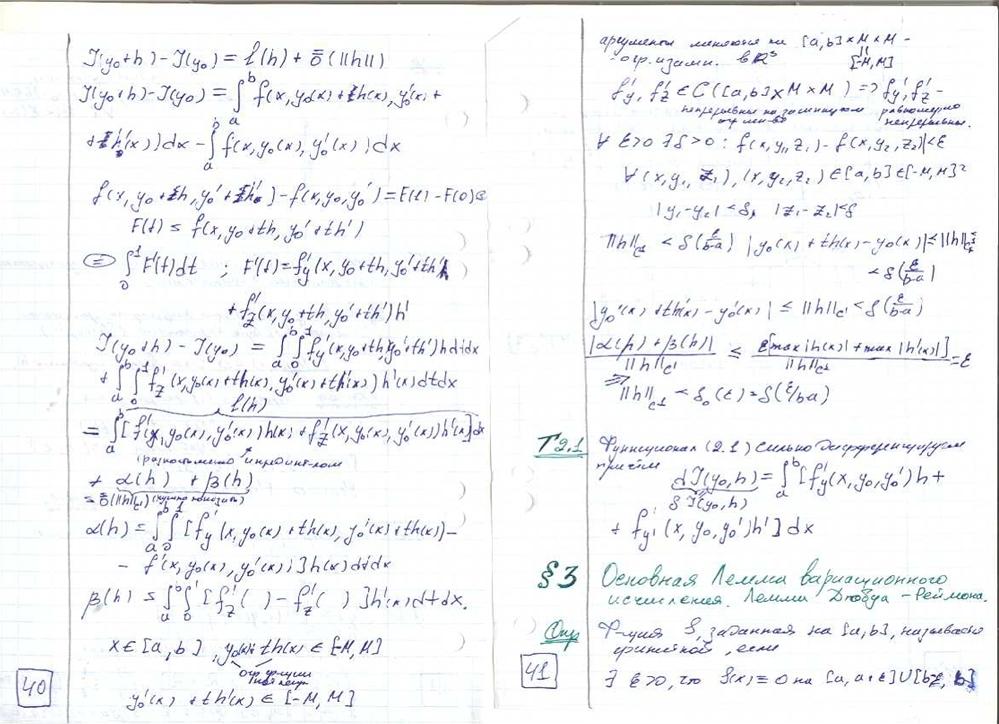 J(y₀+h) - J(y₀) = l(h) + ō(||h||)
J(y₀+h) - J(y₀) = ∫ₐᵇ f(x, y₀(x) + h(x), y₀'(x) +
+ h'(x)) dx - ∫ₐᵇ f(x, y₀(x), y₀'(x)) dx
f(x, y₀+h, y₀'+h') - f(x, y₀, y₀') = F(1) - F(0) =
F(t) = f(x, y₀+th, y₀'+th')
= ∫₀¹ F'(t)dt ; F'(t) = f'y(x, y₀+th, y₀'+th')h
+ f'z(x, y₀+th, y₀'+th')h'
J(y₀+h) - J(y₀) = ∫ₐᵇ∫₀¹ f'y(x, y₀+th, y₀'+th')h dt dx
+ ∫ₐᵇ∫₀¹ f'z(x, y₀(x)+th(x), y₀'(x)+th'(x)) h'(x) dt dx
l(h)
= ∫ₐᵇ [f'y(x, y₀(x), y₀'(x))h(x) + f'z(x, y₀(x), y₀'(x))h'(x)] dx
(разность
+ α(h) + β(h)
= ō(||h||c¹) (нужно показать)
α(h) = ∫ₐᵇ∫₀¹ [f'y(x, y₀(x)+th(x), y₀'(x)+th'(x)) -
- f'(x, y₀(x), y₀'(x))] h(x) dt dx
β(h) = ∫ₐᵇ∫₀¹ [f'z( ) - f'z( )] h'(x) dt dx.
x ∈ [a, b], y₀(x) + th(x) ∈ [-M, M]
огр. функции
y₀'(x) + th'(x) ∈ [-M, M]
40
аргументы меняются на [a, b] × M × M -
- огр. в R³ [-M, M]
f'y, f'z ∈ C([a, b] × M × M) => f'y, f'z -
непрерывны на замкнутом огр мн-во равномерно непрерывны.
∀ ε>0 ∃ δ>0 : f(x, y₁, z₁) - f(x, y₂, z₂)| < ε
∀ (x, y₁, z₁), (x, y₂, z₂) ∈ [a, b] ∈ [-M, M]²
|y₁ - y₂| < δ, |z₁ - z₂| < δ
||h||c¹ < δ(ε/b-a) |y₀(x) + th(x) - y₀(x)| ≤ ||h||c¹ ≤
< δ(ε/b-a)
|y₀'(x) + th'(x) - y₀'(x)| ≤ ||h||c¹ < δ(ε/b-a)
|α(h) + β(h)| / ||h||c¹ ≤ ε[max|h(x)| + max|h'(x)|] / ||h||c¹ = ε
=> ||h||c¹ < δ₀(ε) = δ(ε/b-a)
Т 2.1 Функционал (2.1) сильно дифференцируем
при этом dJ(y₀, h) = ∫ₐᵇ [f'y(x, y₀, y₀')h +
δJ(y₀, h)
+ f'y'(x, y₀, y₀')h'] dx
§3 Основная Лемма вариационного
исчисления. Лемма Дюбуа-Реймона.
Опр Ф-ция f, заданная на [a, b], называется
финитной, если
∃ ε>0, что f(x) ≡ 0 на [a, a+ε] ∪ [b-ε, b]
41